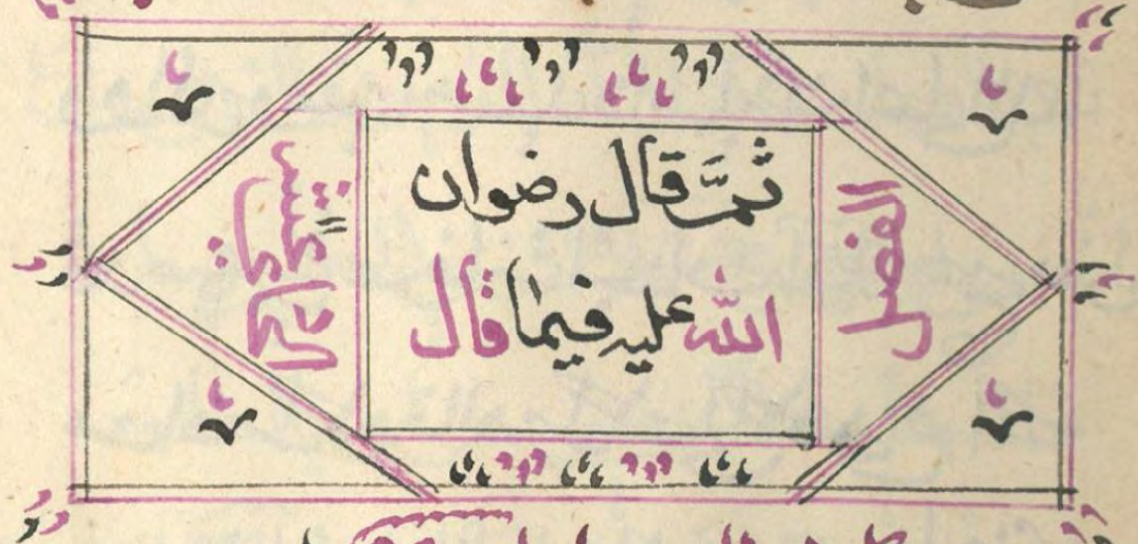 الفصل
ثمَّ قال رضوان
الله عليه فيما قال
الحادي عشر